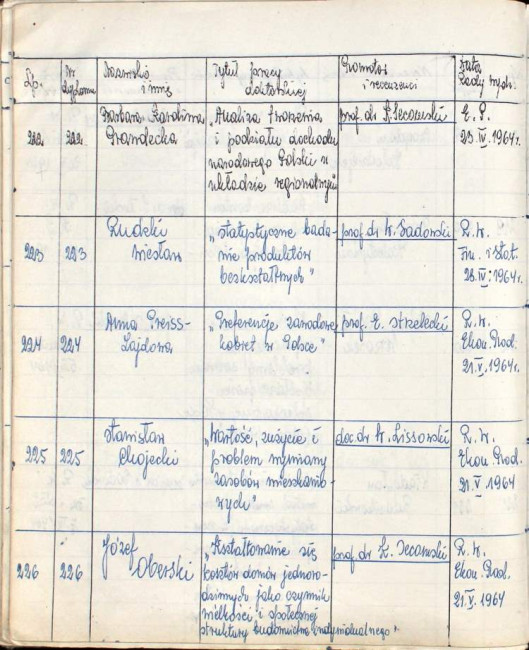 Lp.
Nr dyplomu
Nazwisko i imię
Tytuł pracy doktorskiej
Promotor i recenzenci
Data Rady Wydz.
222
222
Barbara Karolina
Prandecka
„Analiza tworzenia
i podziału dochodu
narodowego Polski w
układzie regionalnym
prof. dr K. Secomski
E. P.
23.IV.1964r.
223
223
Rudzki
Wiesław
„Statystyczne bada-
nie produktów
bezkształtnych"
prof. dr W. Sadowski
R. W.
Fin. i Stat.
28.IV.1964r.
224
224
Anna Preiss-
Zajdowa
„Preferencje zawodowe
kobiet w Polsce"
prof. E. Strzelecki
R. W.
Ekon. Prod.
21.V.1964r.
225
225
Stanisław
Chojecki
„Wartość, zużycie i
problem wymiany
zasobów mieszkanio-
wych"
doc. dr W. Lissowski
R. W.
Ekon. Prod.
21.V.1964
226
226
Józef
Oberski
„Kształtowanie się
kosztów domów jednoro-
dzinnych jako czynnik
wielkości i społecznej
struktury budownictwa indywidualnego"
prof. dr K. Secomski
R. W.
Ekon. Prod.
21.V.1964